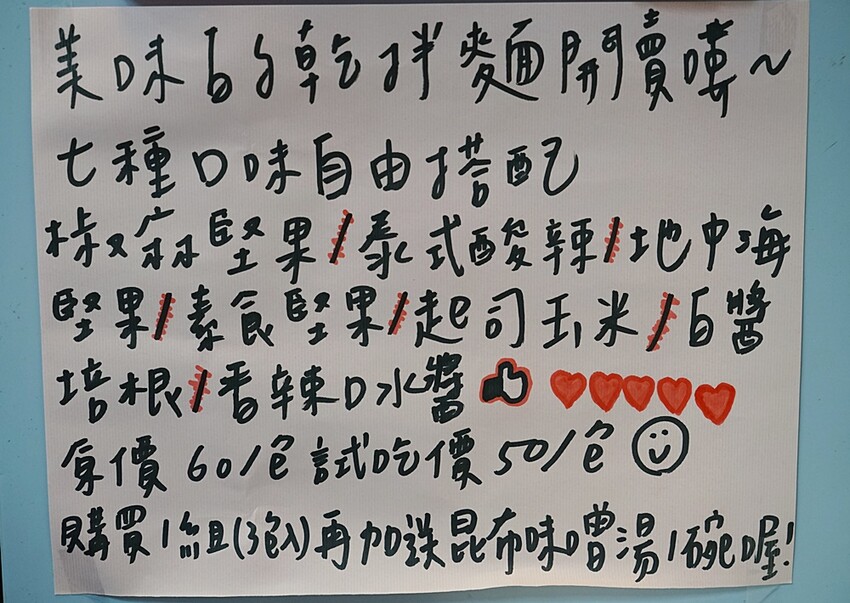 美味的乾拌麵開賣嘍~
七種口味自由搭配
椒麻堅果/泰式酸辣/地中海
堅果/素食堅果/起司玉米/白醬
培根/香辣口水醬
原價60/包 試吃價50/包
購買1組(3包入)再加送昆布味噌湯1碗喔!